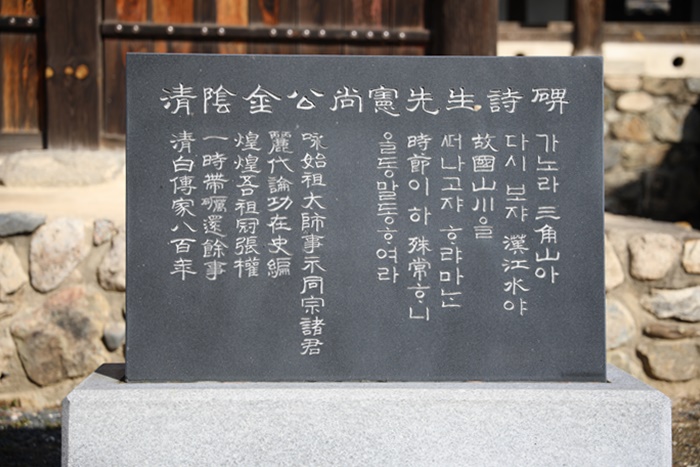 清陰金公尚憲先生詩碑
가노라 三角山아
다시 보쟈 漢江水야
故國山川을
ᄯᅥ나고쟈 ᄒᆞ랴마ᄂᆞᆫ
時節이 하 殊常ᄒᆞ니
올동말동ᄒᆞ여라
咏始祖太師事示同宗諸君
麗代論功在史編
煌煌吾祖冠張權
一時帶礪還餘事
清白傳家八百年